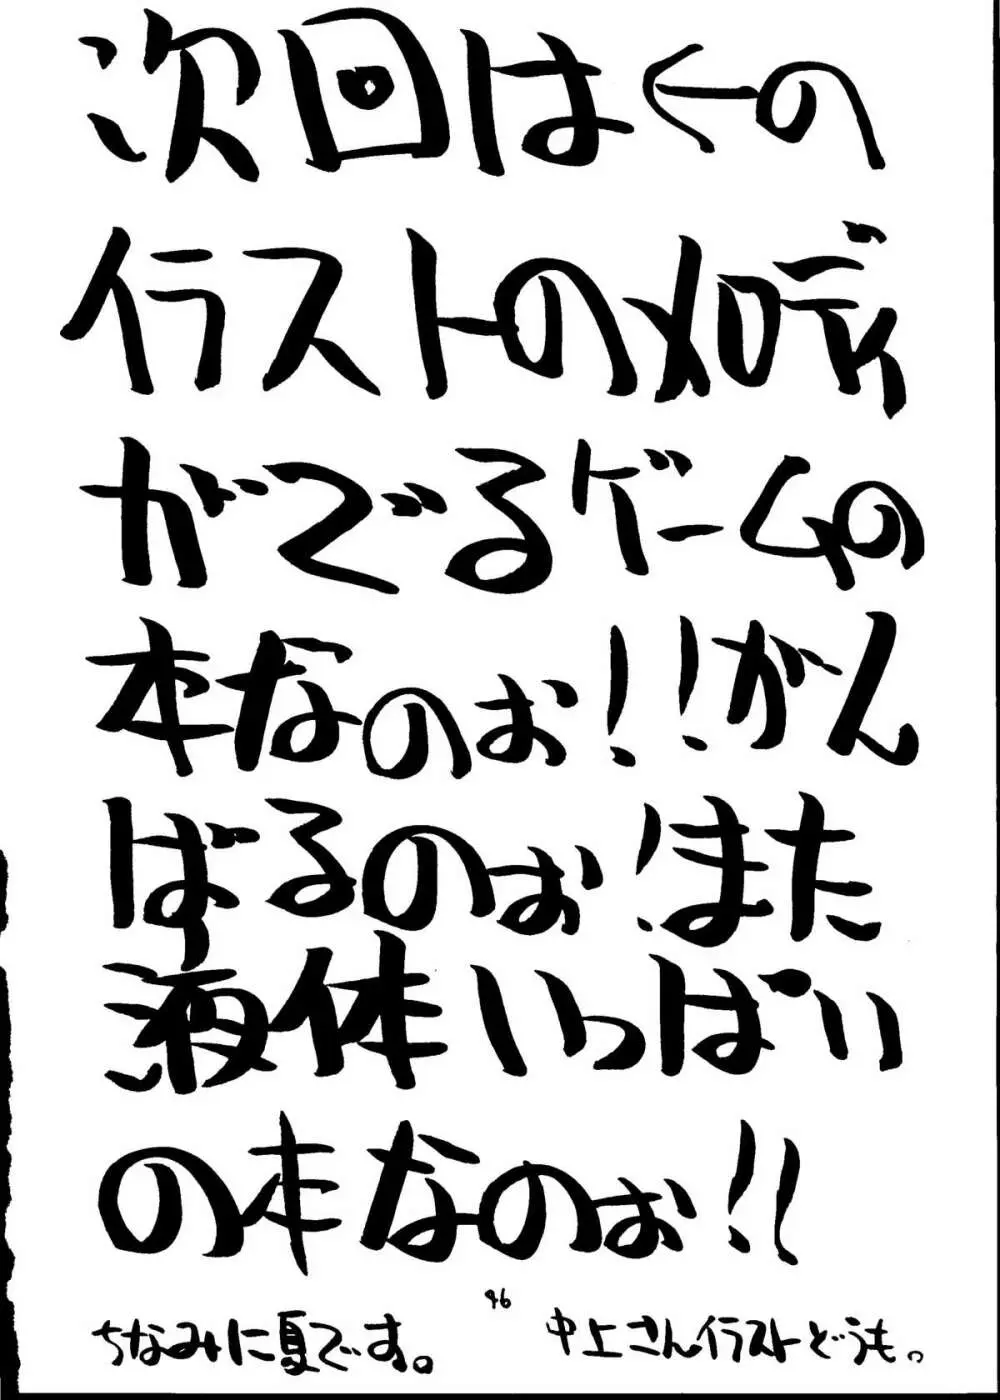 次回は←の
イラストの如哀
がでるゲームの
本なのぉ!!がん
ばるのぉ!また
液体いっぱい
の本なのぉ!!
46
ちなみに夏です。
中上さんイラストどうも。